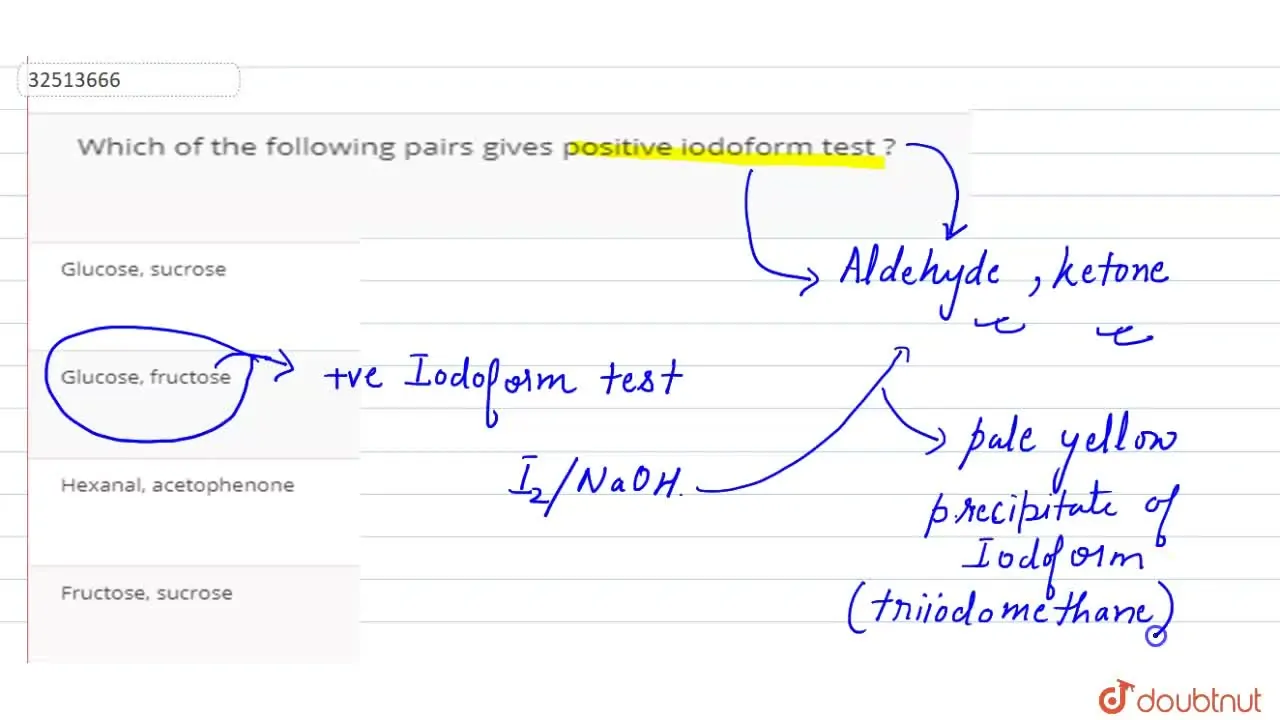 32513666
Which of the following pairs gives positive iodoform test ?
Glucose, sucrose
Aldehyde , ketone
Glucose, fructose
+ve Iodoform test
I2/NaOH.
pale yellow
precipitate of
Iodoform
(triiodomethane)
Hexanal, acetophenone
Fructose, sucrose
doubtnut